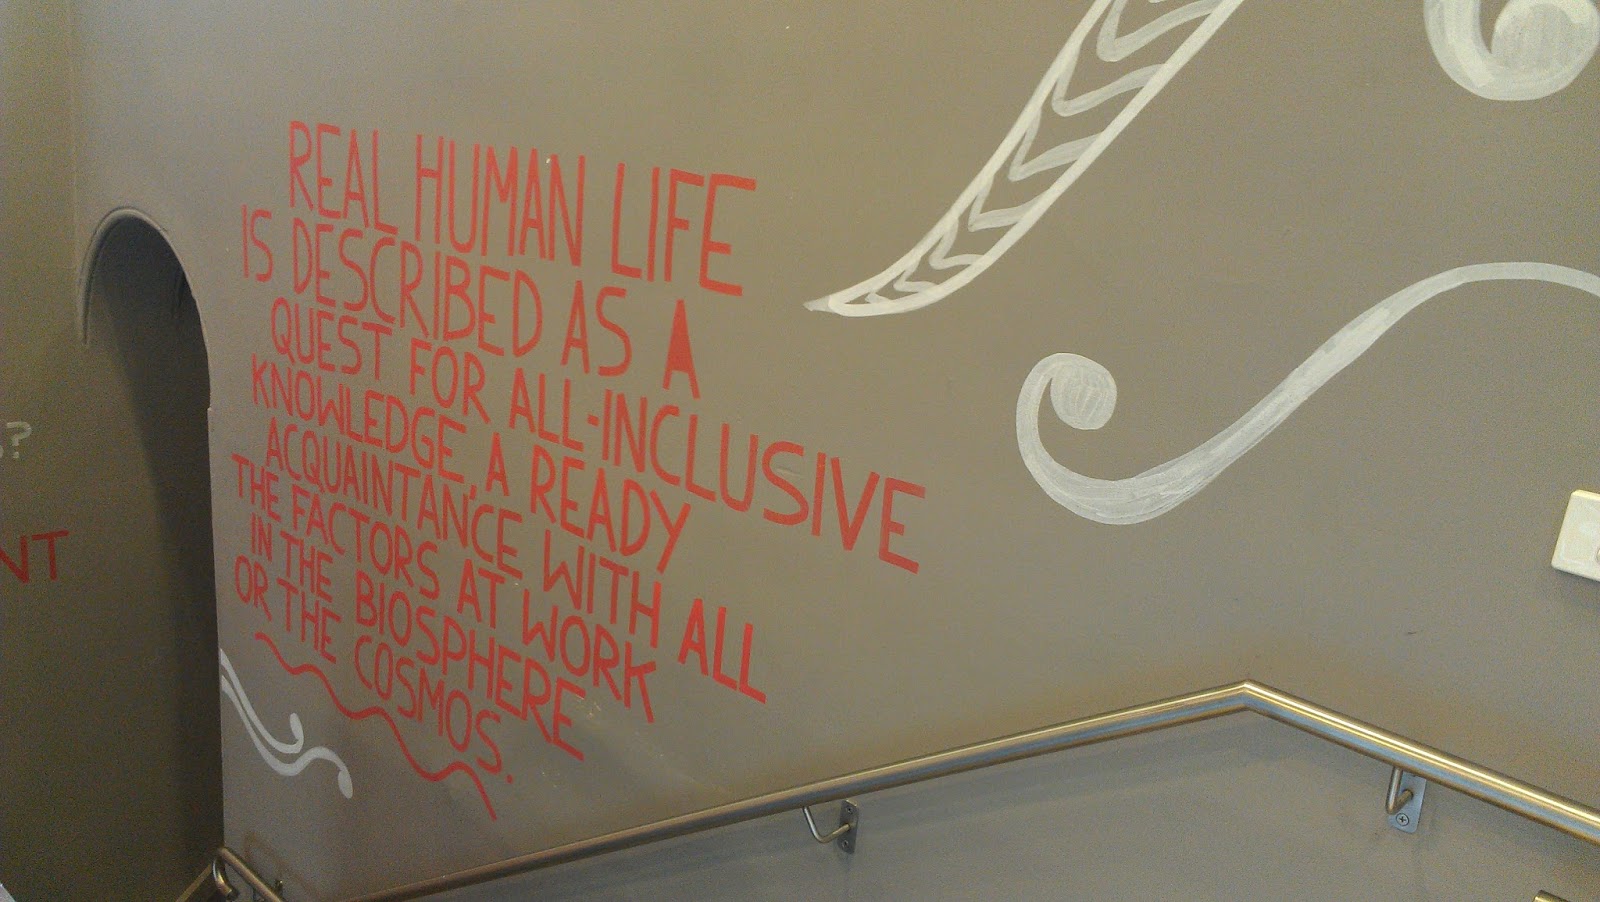 REAL HUMAN LIFE
IS DESCRIBED AS A
QUEST FOR ALL-INCLUSIVE
KNOWLEDGE, A READY
ACQUAINTANCE WITH ALL
THE FACTORS AT WORK
IN THE BIOSPHERE
OR THE COSMOS.